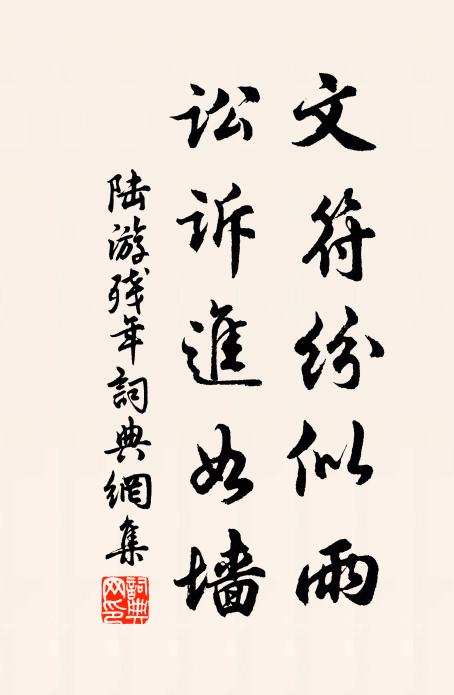 文符纷似雨
讼诉進如墙
陆游残年詞典網集
詞典網印